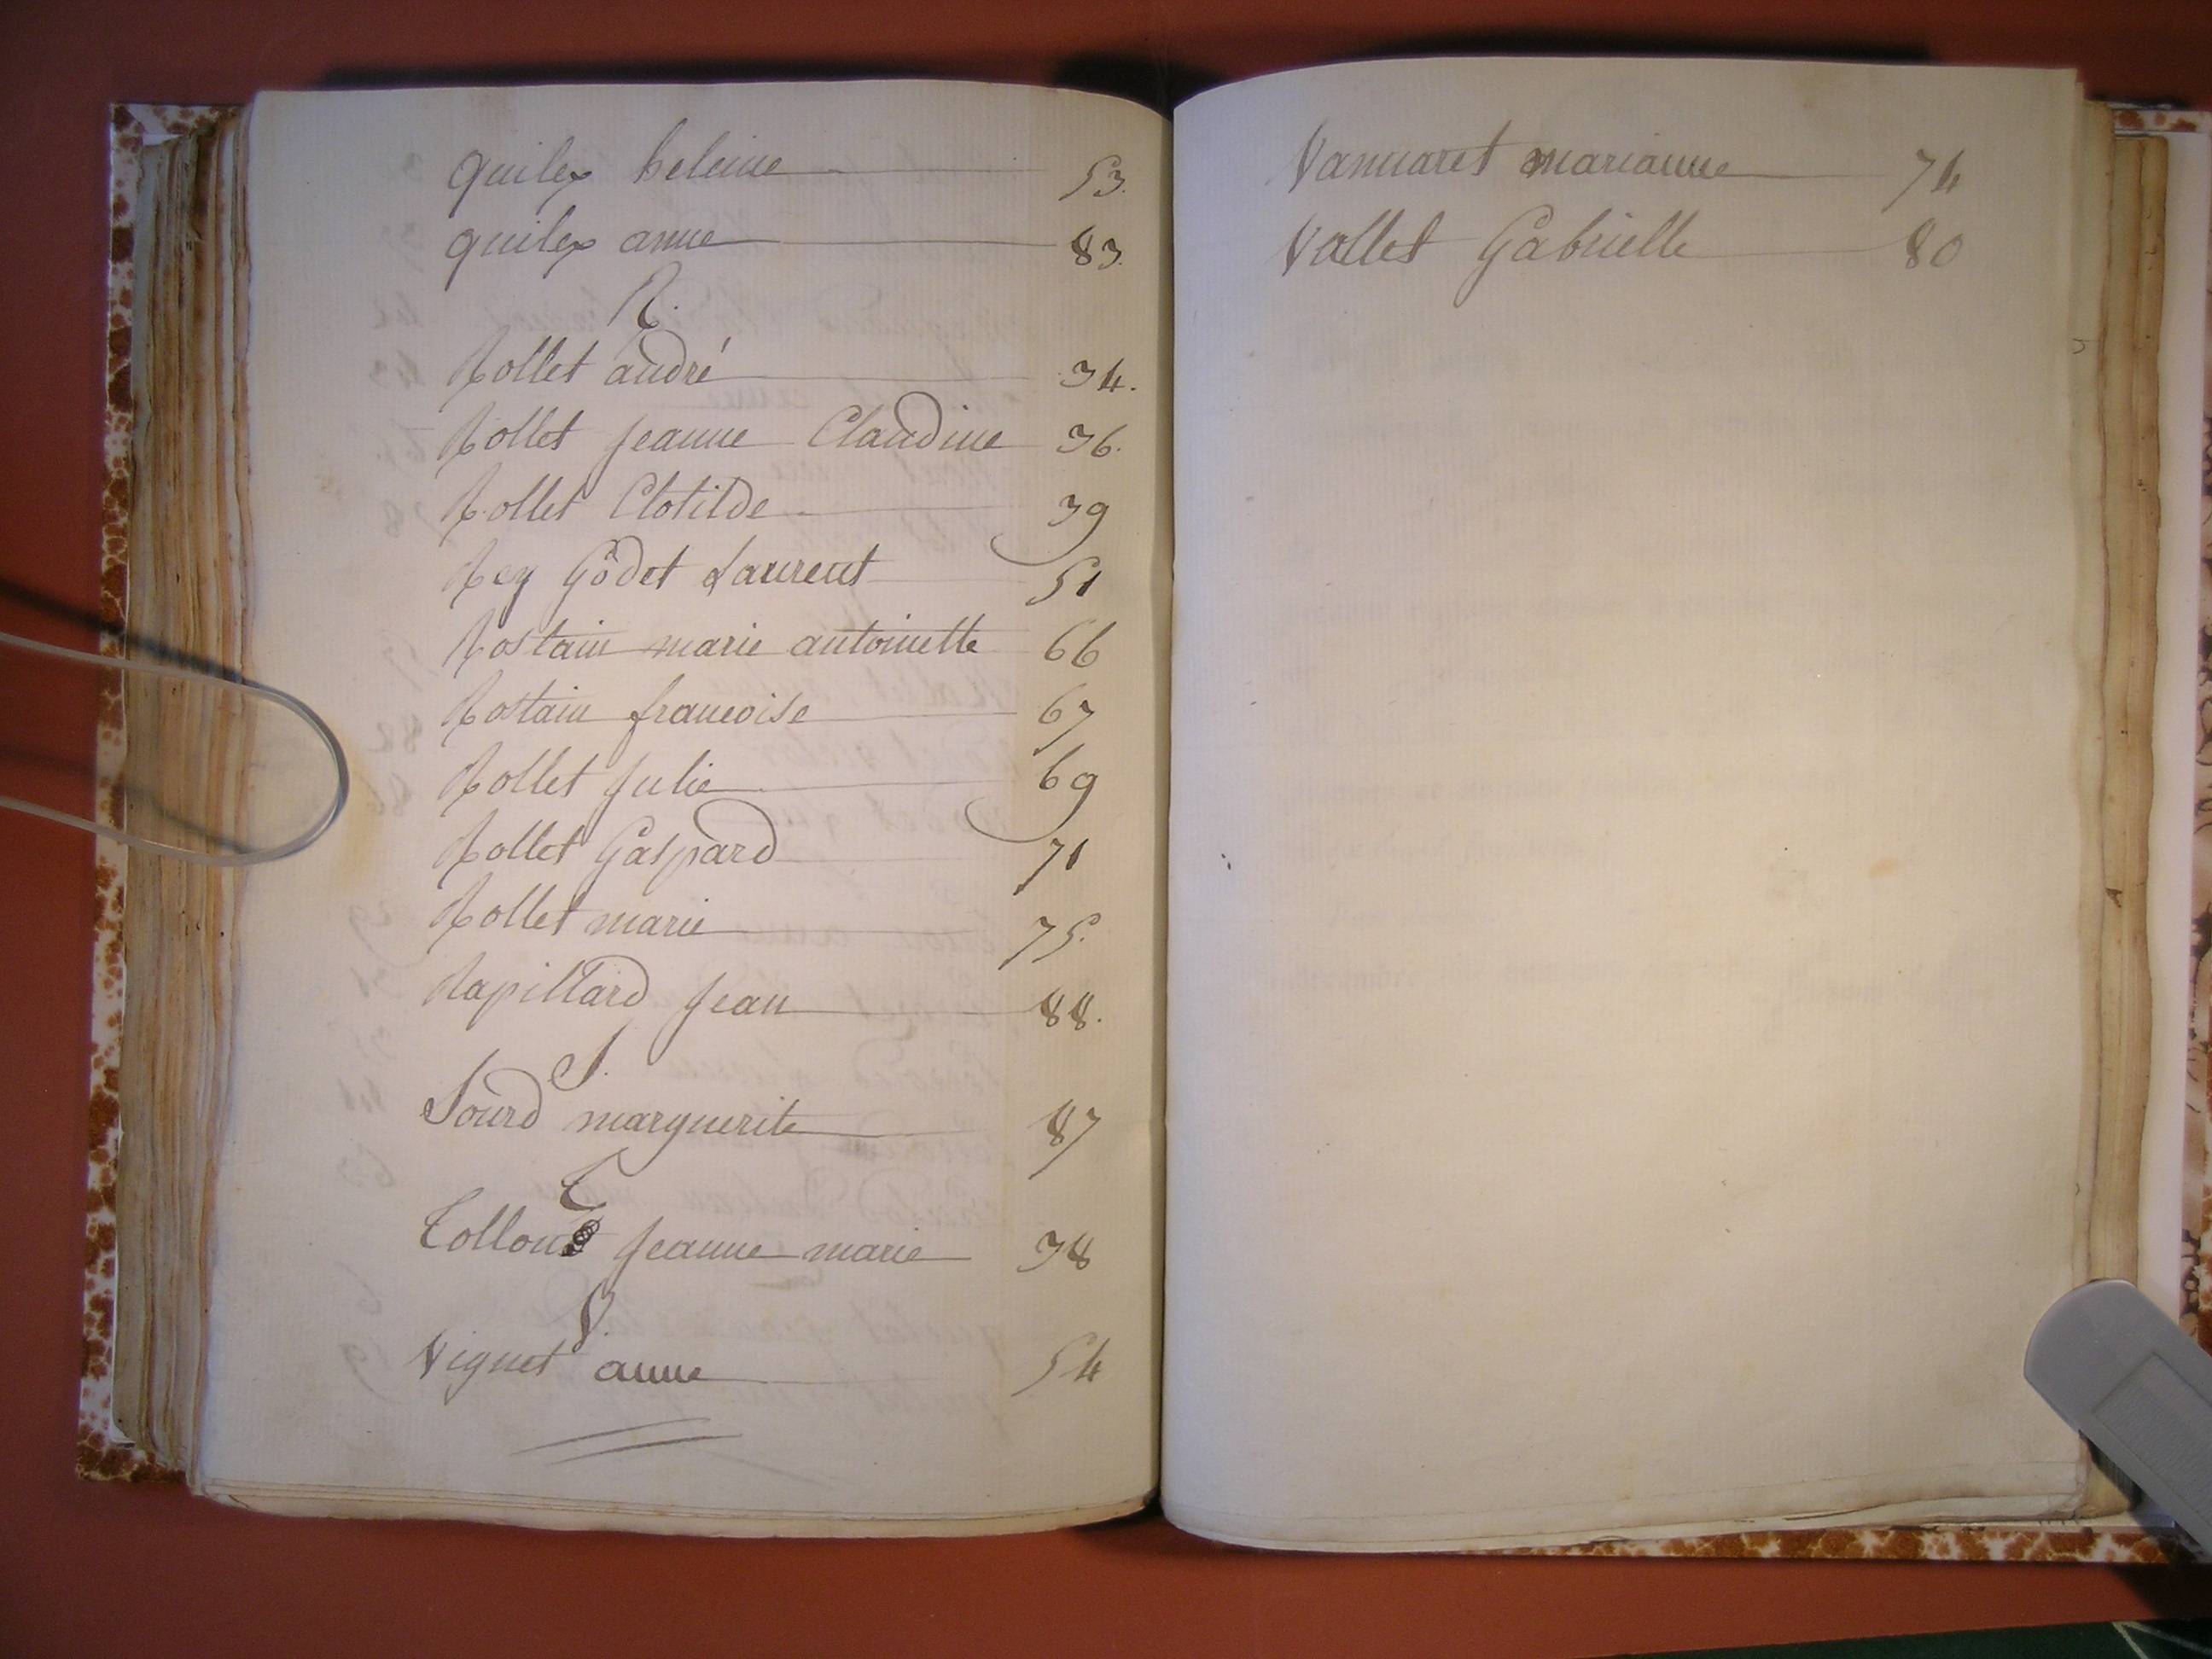 quilex heleine 53.
quilex anne 83.
R.
Rollet andré 34.
Rollet jeanne Claudine 36.
Rollet Clotilde 39
Rey Godet Laurent 51
Rostain marie antoinette 66
Rostain francoise 67
Rollet Julie 69
Rollet Gaspard 71
Rollet marie 75.
Rapillard jean 88.
S.
Sourd marguerite 87
T
Tollon jeanne marie 38
V.
Vignet anne 54
Vannaret marianne 74
Vallet Gabrielle 80